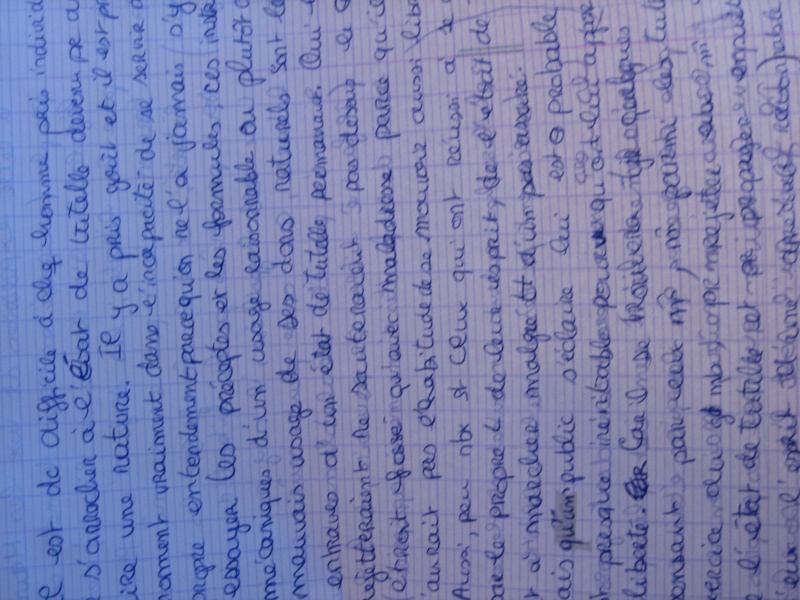 est dc difficile à chq homme pris individ
s'arracher à l'état de tutelle devenu pr a
ire une nature. Il y a pris goût et il est pr
moment vraiment dans l'incapacité de se servir d
propre entendement parce qu'on ne l'a jamais s'y
essayer. Les préceptes et les formules, ces
mécaniques d'un usage raisonnable ou plutôt d
mauvais usage de ses dons naturels sont le
entraves d'un état de tutelle permanent. Qui
rejetteraient ne sauteraient pas dessus le
étroit fossé qu'avec maladresse parce qu'i
n'aurait pas l'habitude de se mouvoir aussi lib
Aussi, peu nbx st ceux qui ont réussi à se
par le propre de leur esprit, de l'état de
t à marcher malgré tt d'un pas assuré.
ais qu'un public s'éclaire lui est probable
presque inévitable pour qu'on lui
liberté. Car on se quelques
pensant par eux m̂, m̂ parmi des tute
exercice qui, après avoir rejeté eux m̂
l'état de tutelle, propageront ensuite
d'eux l'esprit